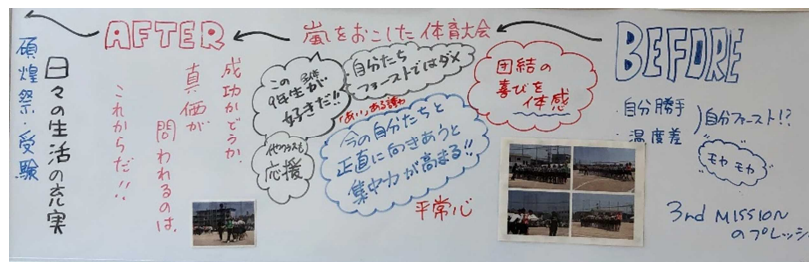 BEFORE
自分勝手
・温度差
自分ファースト!?
モヤモヤ
3rd MISSION
のプレッシ
嵐をおこした体育大会
団結の
喜びを
体感
自分たち
ファーストではダメ
この
9年生が
好きだ!!
今の自分たちと
正直に向きあうと
集中力が高まる!!
他クラスも
応援
平常心
AFTER
成功かどうか、
真価が
問われるのは、
これからだ!!
日々の生活の充実
碩煌祭・受験